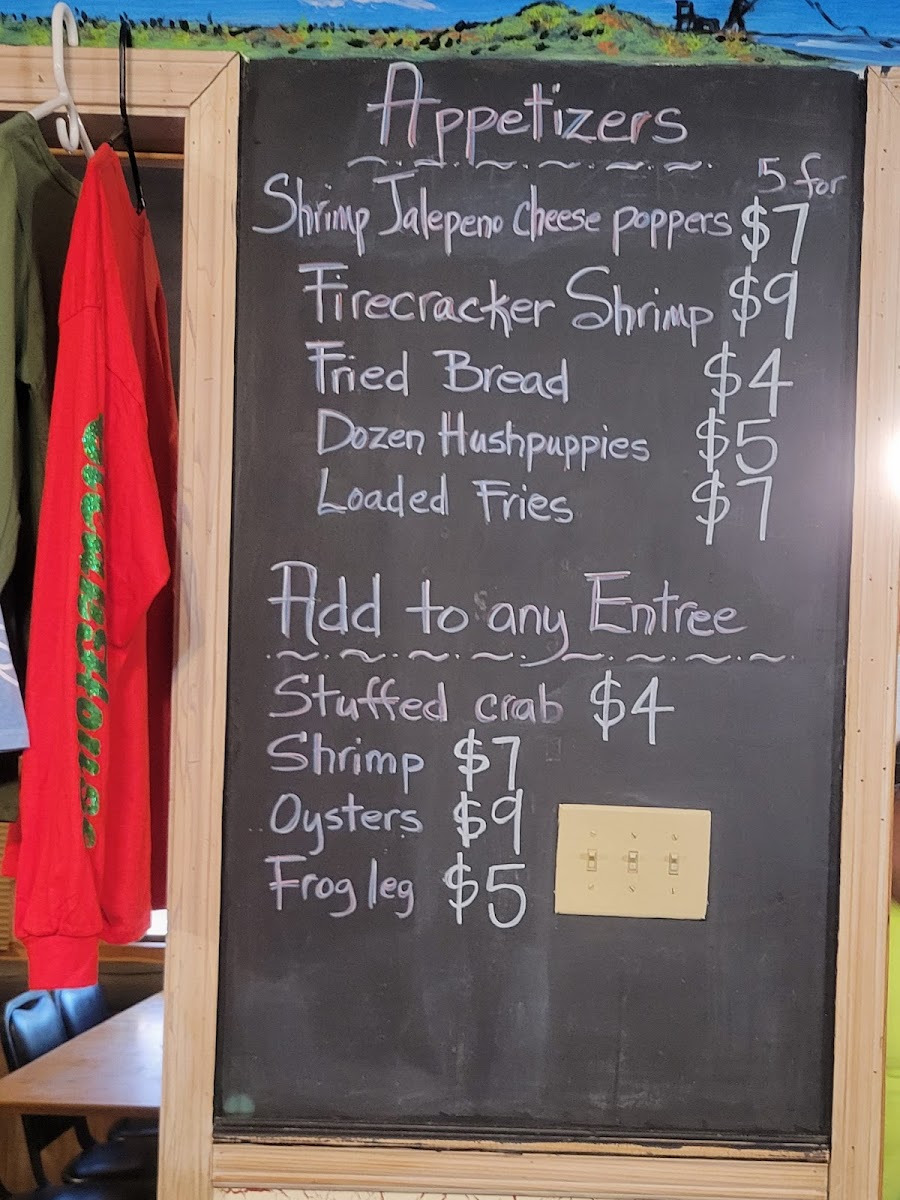 Appetizers
5 for
Shrimp Jalepeno Cheese poppers $7
Firecracker Shrimp $9
Fried Bread $4
Dozen Hushpuppies $5
Loaded Fries $7
Add to any Entree
Stuffed crab $4
Shrimp $7
Oysters $9
Frog leg $5